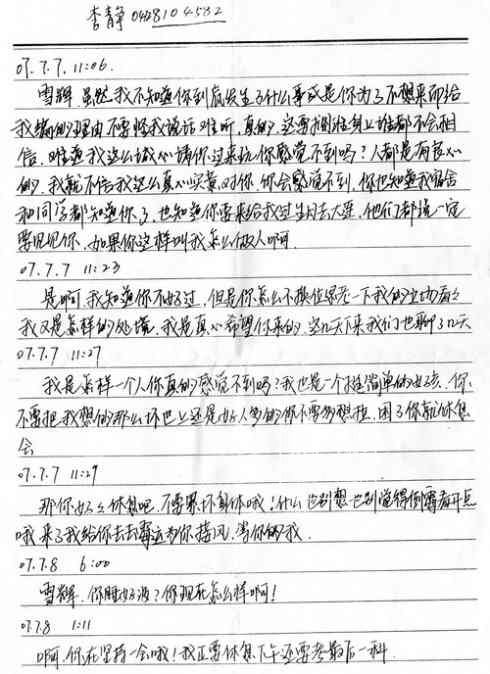 李静 0428104532
07.7.7. 11:06.
雪辉 虽然我不知道你到底发生了什么事或是你为了不想来而给
我编的理由不要怪我说话难听,真的,这要搁谁身上谁都不会相
信,难道我这么诚心请你过来玩你感觉不到吗?人都是有良心
的,我就不信我这么真心实意对你,你会感觉不到,你也知道我宿舍
和同学都知道你了,也知道你要来给我过生日去大连,他们都说一定
要见见你,如果你这样叫我怎么做人啊.
07.7.7 11:23
是啊 我知道你不好过,但是你怎么不换位思考一下我的立场看看
我又是怎样的处境,我是真心希望你来的,这几天下来我们也聊了几天
07.7.7 11:27
我是怎样一个人你真的感觉不到吗?我也是一个挺简单的女孩,你
不要把我想的那么坏世上还是好人多的你不要多想啦,困了你就休息
会
07.7.7 11:29
那你好好休息吧,不要累坏身体哦!什么也别想也别觉得倒霉有
哦 来了我给你去去霉运为你接风,等你的我.
07.7.8 6:00
雪辉,你睡好没?你现在怎么样啊!
07.7.8 1:11
啊,你在坚持一会哦!我正要休息下午还要考最后一科.